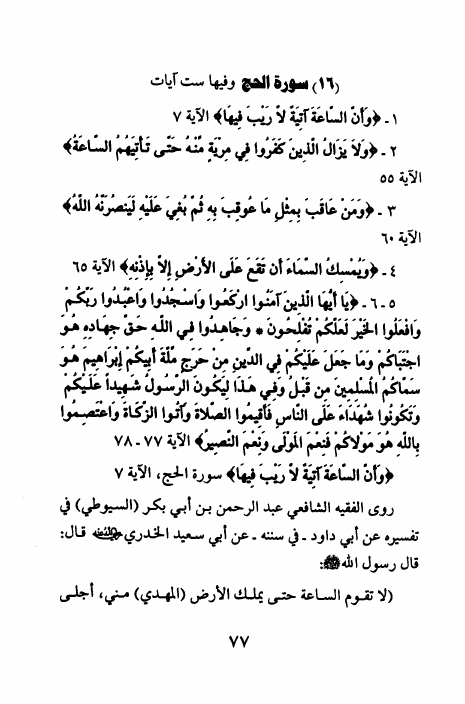 (١٦) سورة الحج وفيها ست آيات
١ ـ ﴿وَأَنَّ السَّاعَةَ آتِيَةٌ لاَ رَيْبَ فِيهَا﴾ الآية ٧
٢ ـ ﴿وَلاَ يَزَالُ الَّذِينَ كَفَرُوا فِي مِرْيَةٍ مِنْهُ حَتَّى تَأْتِيَهُمُ السَّاعَةُ﴾
الآية ٥٥
٣ ـ ﴿وَمَنْ عَاقَبَ بِمِثْلِ مَا عُوقِبَ بِهِ ثُمَّ بُغِيَ عَلَيْهِ لَيَنصُرَنَّهُ اللَّهُ﴾
الآية ٦٠
٤ ـ ﴿وَيُمْسِكُ السَّمَاءَ أَن تَقَعَ عَلَى الأَرْضِ إِلاَّ بِإِذْنِهِ﴾ الآية ٦٥
٥ ـ ٦ ـ ﴿يَا أَيُّهَا الَّذِينَ آمَنُوا ارْكَعُوا وَاسْجُدُوا وَاعْبُدُوا رَبَّكُمْ
وَافْعَلُوا الْخَيْرَ لَعَلَّكُمْ تُفْلِحُونَ * وَجَاهِدُوا فِي اللَّهِ حَقَّ جِهَادِهِ هُوَ
اجْتَبَاكُمْ وَمَا جَعَلَ عَلَيْكُمْ فِي الدِّينِ مِنْ حَرَجٍ مِّلَّةَ أَبِيكُمْ إِبْرَاهِيمَ هُوَ
سَمَّاكُمُ الْمُسْلِمِينَ مِن قَبْلُ وَفِي هَذَا لِيَكُونَ الرَّسُولُ شَهِيداً عَلَيْكُمْ
وَتَكُونُوا شُهَدَاءَ عَلَى النَّاسِ فَأَقِيمُوا الصَّلاَةَ وَآتُوا الزَّكَاةَ وَاعْتَصِمُوا
بِاللَّهِ هُوَ مَوْلاَكُمْ فَنِعْمَ الْمَوْلَى وَنِعْمَ النَّصِيرُ﴾ الآية ٧٧ ـ ٧٨
﴿وَأَنَّ السَّاعَةَ آتِيَةٌ لاَ رَيْبَ فِيهَا﴾ سورة الحج، الآية ٧
روى الفقيه الشافعي عبد الرحمن بن أبي بكر (السيوطي) في
تفسيره عن أبي داود ـ في سننه ـ عن أبي سعيد الخدري قال:
قال رسول الله ﷺ:
(لا تقوم الساعة حتى يملك الأرض (المهدي) مني، أجلى
٧٧